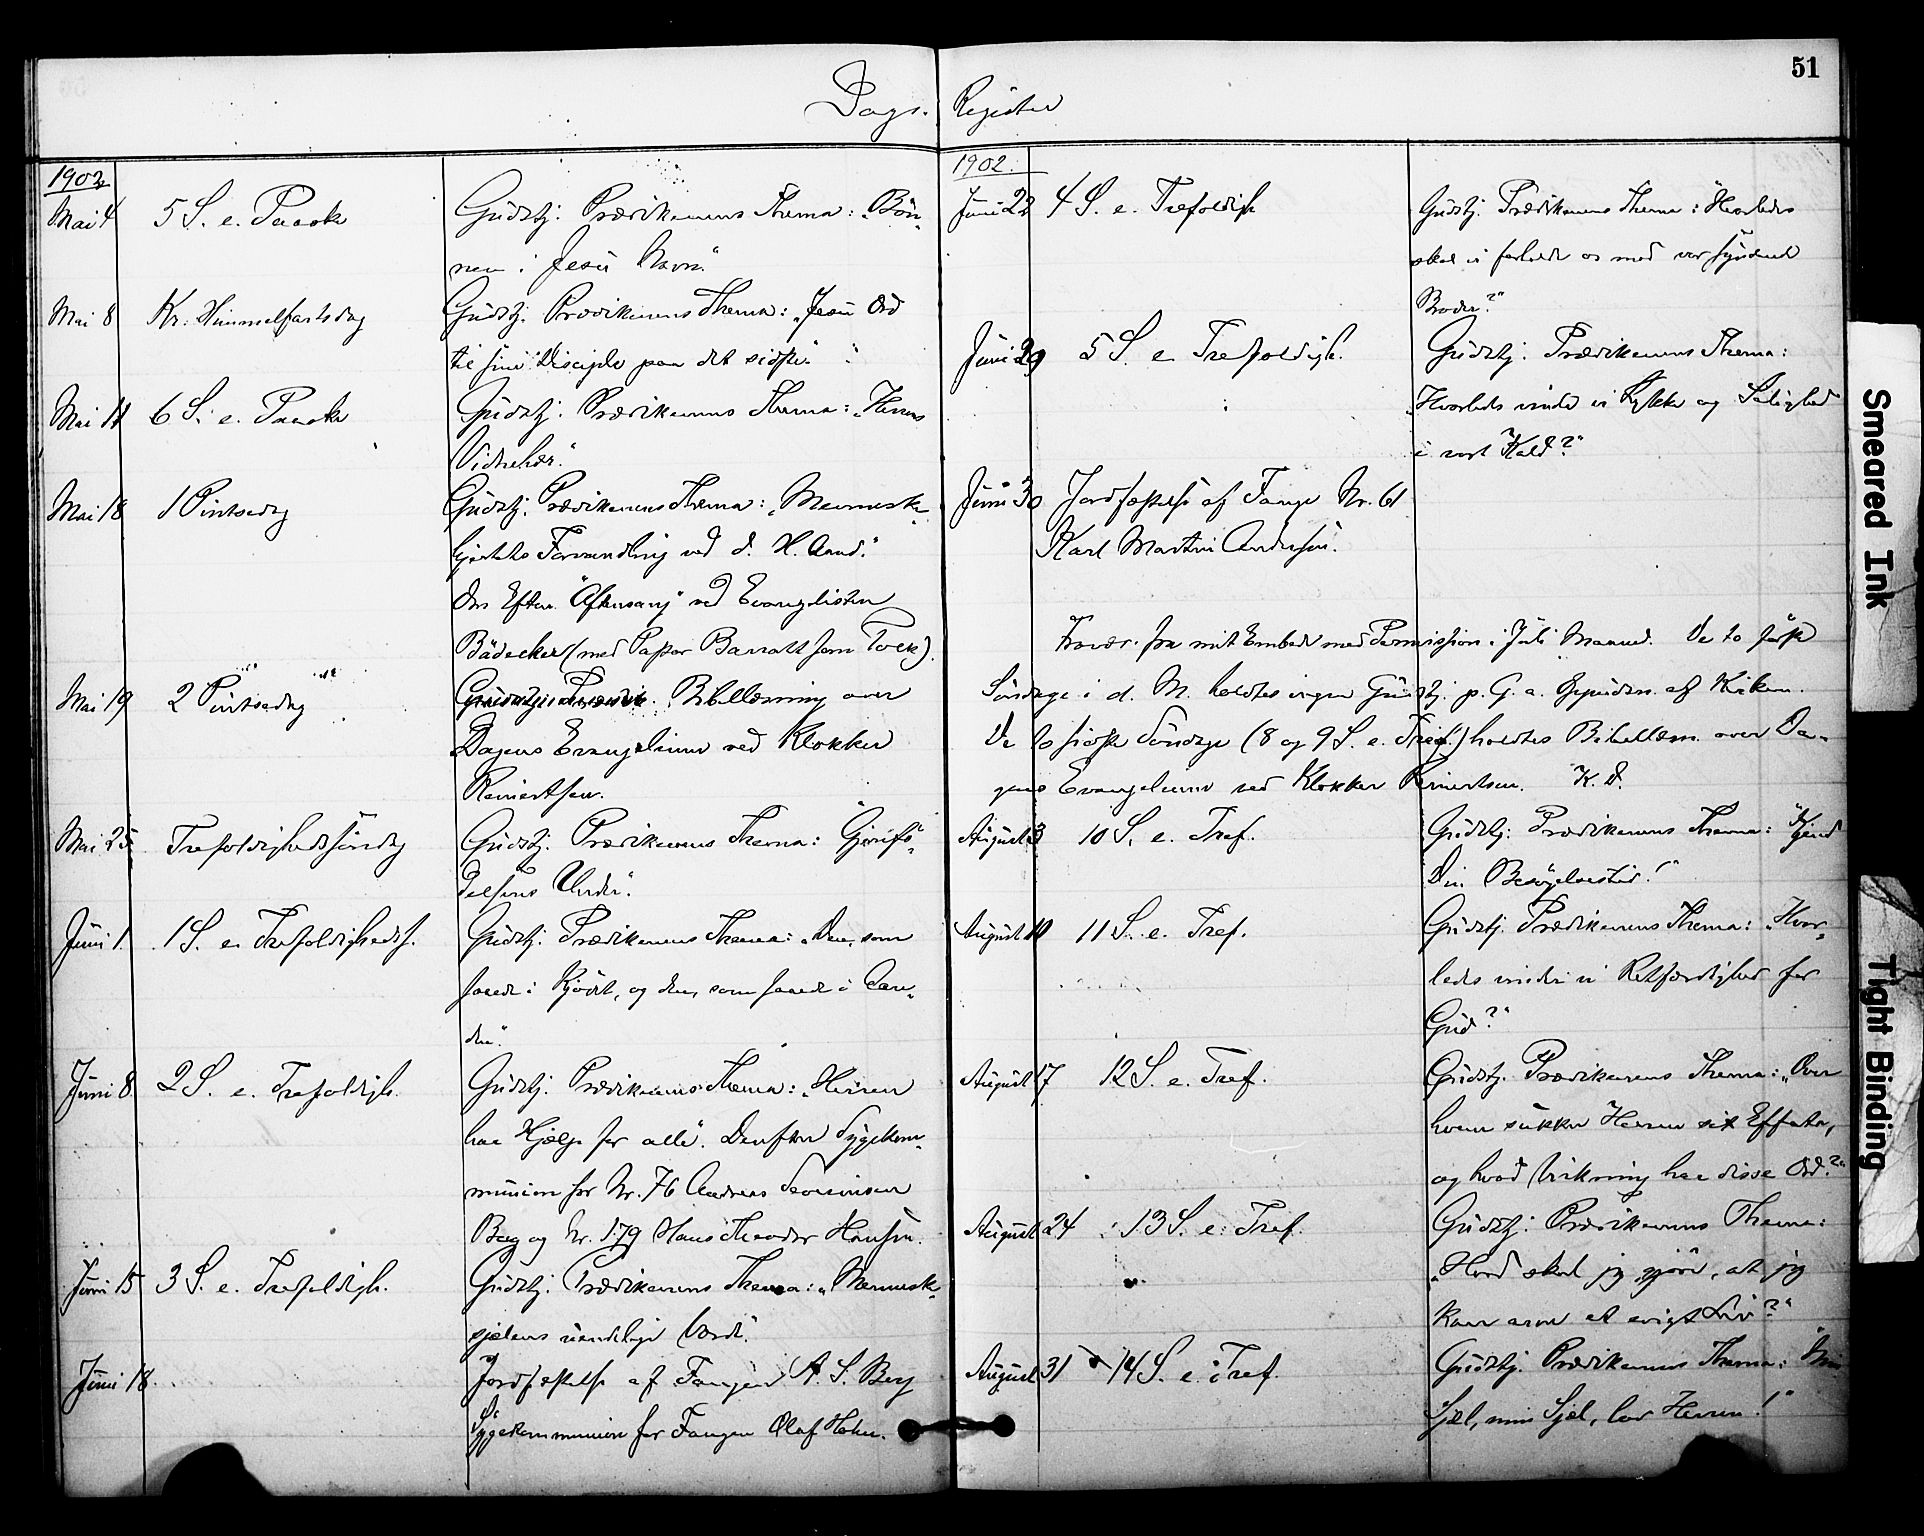 51
Dags-
Register
1902
Mai 4 5 S. e. Paaske Gudstj. Prædikenens Thema: „Bøn-
nen i Jesu Navn."
Mai 8 Kr. Himmelfartsdag Gudstj. Prædikenens Thema: „Jesu Ord
til sine Disciple paa det sidste."
Mai 11 6 S. e. Paaske Gudstj. Prædikenens Thema: „Herrens
Vidnehær."
Mai 18 1 Pintsedag Gudstj. Prædikenens Thema: „Menneske-
hjertets Forvandling ved d. H. Aand."
Om Efterm. "Aftensang" ved Evangelisten
Bädecker (med Pastor Barratt som Tolk).
Mai 19 2 Pintsedag Bibellæsning over
Dagens Evangelium ved Klokker
Reinertsen.
Mai 25 Trefoldighedssøndag Gudstj. Prædikenens Thema: "Gjenfø-
delsens Under".
Juni 1 1 S. e. Trefoldigheds. Gudstj. Prædikenens Thema: „Den, som
saaede i Kjødet, og den, som saaede i Aan-
den".
Juni 8 2 S. e. Trefoldigh. Gudstj. Prædikenens Thema: „Herren
har Hjælp for alle". Derefter Sygekom-
munion for Nr. 76 Andreas Severinsen
Berg og Nr. 179 Hans Theodor Hansen.
Juni 15 3 S. e. Trefoldigh. Gudstj. Prædikenens Thema: „Menneske-
sjælens uendelige Værd".
Juni 18 Jordfæstelse af Fangen A. S. Berg
Sygekommunion for Fangen Olaf
1902.
Juni 22 4 S. e. Trefoldigh Gudstj. Prædikenens Thema: "Hvorledes
skal vi forholde os mod vor syndende
Broder?"
Juni 29 5 S. e. Trefoldigh. Gudstj. Prædikenens Thema:
„Hvorledes vinde vi Lykke og Salighed
i vort Kald?"
Juni 30 Jordfæstelse af Fange Nr. 61
Karl Martin Andersen.
Fravær. fra mit Embede med Permission i Juli Maaned. De to første
Søndage i d. M. holdtes ingen Gudstj. p. G. a. Opudsn. af Kirken.
De to sidste Søndage (8 og 9 S. e. Tref.) holdtes Bibellæsn. over Da-
gens Evangelium ved Klokker Reinertsen. K. D.
August 3 10 S. e. Tref. Gudstj. Prædikenens Thema: "Kjend
Din Besøgelsestid!"
August 10 11 S. e. Tref. Gudstj. Prædikenens Thema: „Hvor-
ledes vinder vi Retfærdighed for
Gud?"
August 17 12 S. e. Tref. Gudstj. Prædikenens Thema: „Over
hvem sukker Herren sit Effata,
og hvad Virkning har disse Ord?"
August 24 13 S. e. Tref. Gudstj. Prædikenens Thema:
„Hvad skal jeg gjøre, at jeg
kan arve et evigt Liv?"
August 31 14 S. e. Tref. Gudstj. Prædikenens Thema: "Min
Sjæl, min Sjæl, lov Herren!"
Smeared Ink
Tight Binding